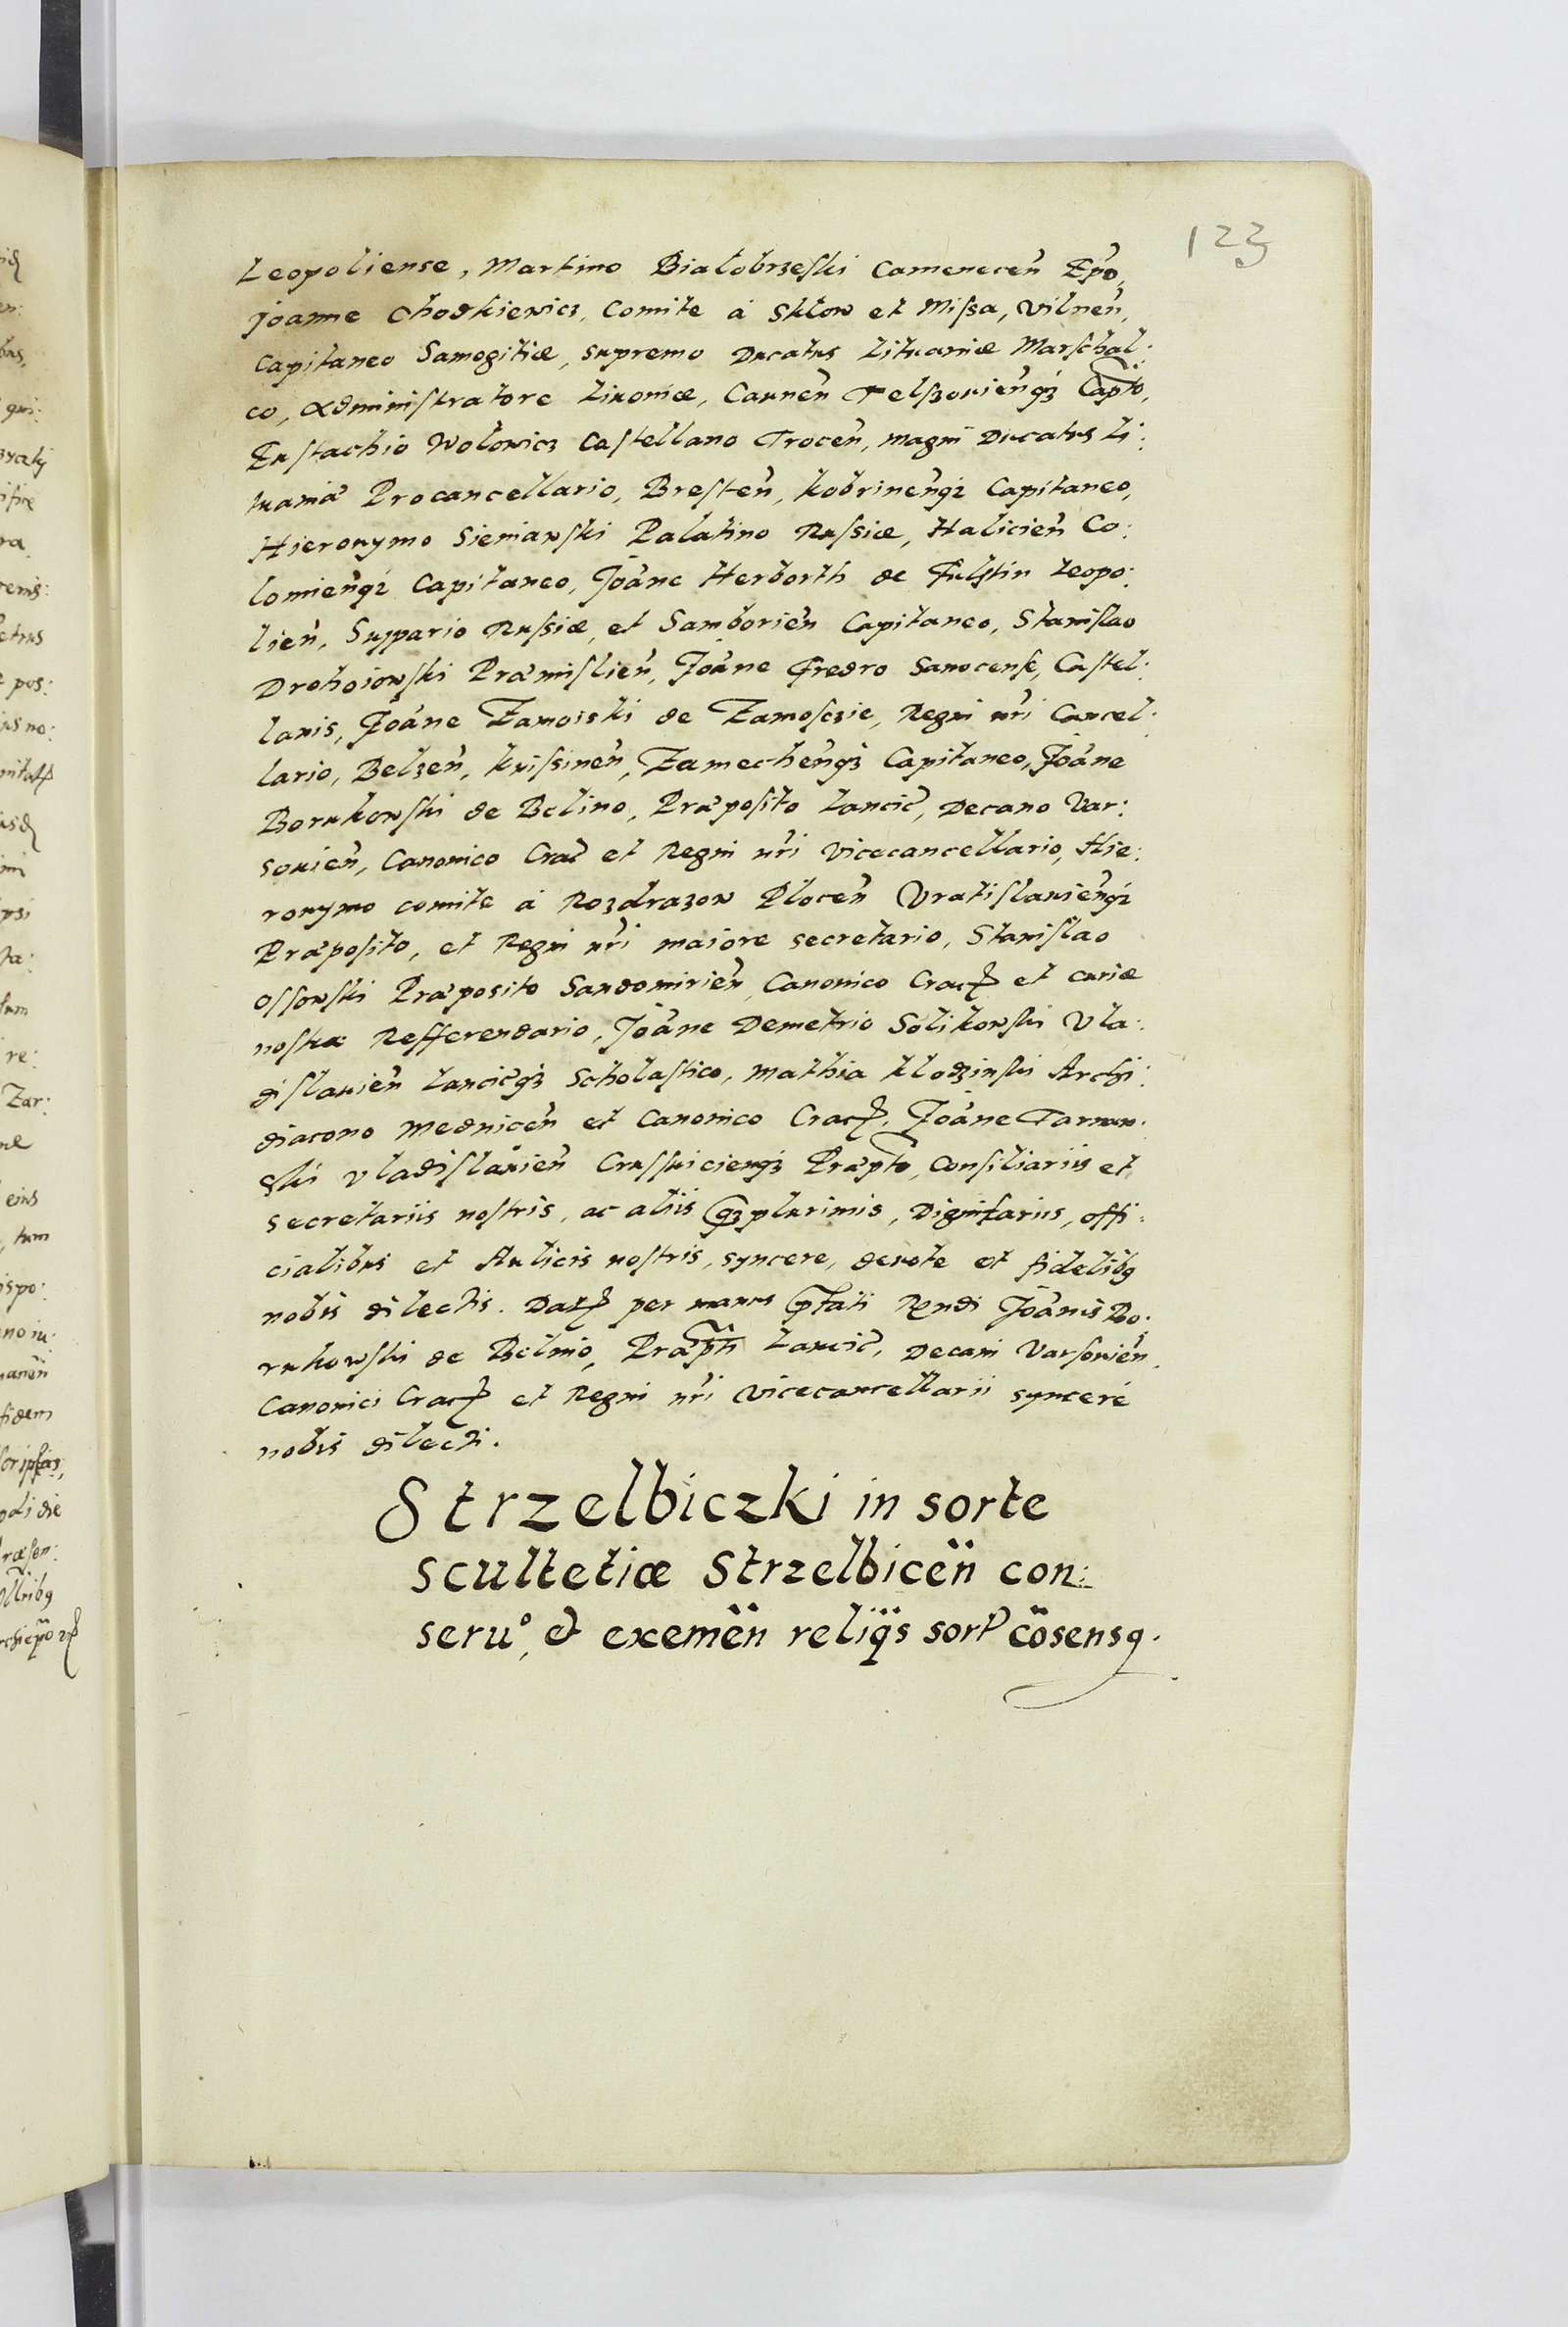 123
Leopoliense, Martino Białobrzeski Camenecen̄ Ep̄o,
Joanne Chodkiewicz, Comite à Sklow et Missa, Vilnen̄,
Capitaneo Samogitiæ, supremo Ducatus Lituaniæ Marschal:
co, Administratore Livoniæ, Caunen̄ Telszouien̄q3 Capt̄o,
Eustachio Wolowicz Castellano Trocen̄, magni Ducatus Li:
tuaniæ Procancellario, Bresten̄, Kobrinen̄q3 Capitaneo,
Hieronymo Sieniawski Palatino Russiæ, Halicien̄ Co:
lomien̄q3 Capitaneo, Joāne Herborth de Fulstin Leopo:
lien̄, Suppario Russiæ, et Samborien̄ Capitaneo, Stanislao
Drohoiowski Præmislien̄, Joāne Fredro Sanocense, Castel:
lanis, Joāne Zamoiski de Zamosczie, Regni nr̄i Cancel:
lario, Belzen̄, Knissinen̄, Zamechen̄q3 Capitaneo, Joāne
Borukowski de Belino, Præposito Lancic̄, Decano Var:
souien̄, Canonico Crac̄ et Regni nr̄i Vicecancellario, Hie:
ronymo comite à Rozdrazow Plocen̄ Vratislauien̄q3
Præposito, et Regni nr̄i maiore secretario, Stanislao
Ossowski Præposito Sandomirien̄, Canonico Crac̄ et curiæ
nostræ Refferendario, Joāne Demetrio Solikowski Vla:
dislauien̄ Lancic̄q3 Scholastico, Mathia Klodzinski Archi:
diacono Mednicen̄ et Canonico Crac̄, Joāne Tarnow:
ski Vladislauien̄ Crusuicien̄q3 Præpt̄o, Consiliariis et
secretariis nostris, ac aliis q̄3plurimis, Dignitariis, offi:
cialibus et Aulicis nostris, syncere, deuote et fidelibq
nobis dilectis. Dat̄ per manus p̄fati Rendi Joānis Bo:
rukowski de Belino, Præpt̄i Lancic̄, Decani Varsouien̄,
Canonici Crac̄ et Regni nr̄i Vicecancellarii synceré
nobis dilecti.
Strzelbiczki in sorte
scultetiæ Strzelbicen̄ con:
seruº, et exemen̄ reliq̄s sort̄ cōsensq.